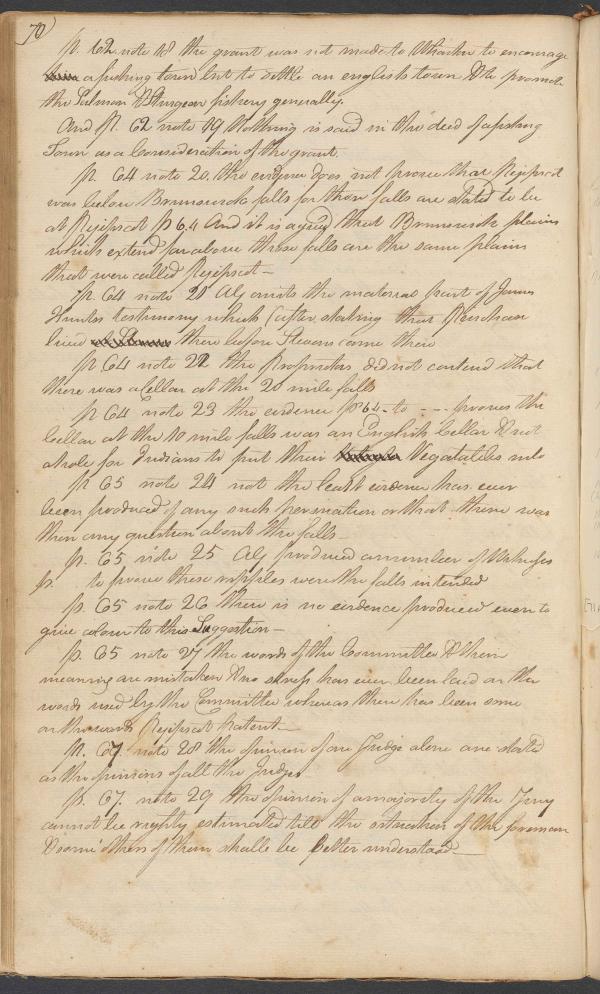 70
p. 62 note 18 the grant was not made to Wharton to encourage
a fishing town but to settle an english town & to promote
the Salmon & Sturgeon fishery generally.
And p. 62 note 19 Nothing is said in the deed of a fishing
Town as a Consideration of the grant.
p. 64 note 20. the evidence does not prove that Pejipscot
was below Brunswick falls for those falls are stated to be
at Pejipscot p 64 And it is agreed that Brunswick plains
which extend far above these falls are the same plains
that were called Pejipscot—
p. 64 note 21 Aly omits the material part of James
Hunters testimony which (after stating that Purchase
lived there before Stevens came there
p 64 note 22 the Proprietors did not contend that
there was a Cellar at the 20 mile falls
p 64 note 23 the evidence p 64 - to - - - proves the
Cellar at the 20 mile falls was an English Cellar & not
a hole for Indians to put their Vegatables into
p 65 note 24 not the least evidence has ever
been produced of any such perswation or that there was
then any question about the falls—
p. 65 note 25 Aly produced a number of Witnesses
p. to prove these ripples were the falls intended
p. 65 note 26 there is no evidence produced even to
give colour to this Suggestion—
p. 65 note 27 the words of the Committee & their
meaning are mistaken & no stress has ever been laid on the
words used by the Committee whereas there has been some
on the words Pejipscot Patent—
p. 67. note 28 the opinion of one Judge alone are stated
as the opinions of all the Judges
p. 67. note 29 the opinion of a majority of the Jury
cannot be rightly estimated till the situation of the foreman
& some others of them shall be better understood—